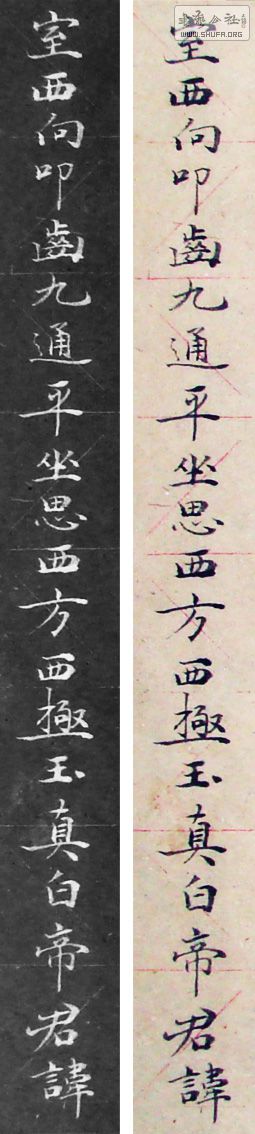 室西向叩齒九通平坐思西方西極玉真白帝君諱
室西向叩齒九通平坐思西方西極玉真白帝君諱
书法公社
WWW.SHUFA.ORG